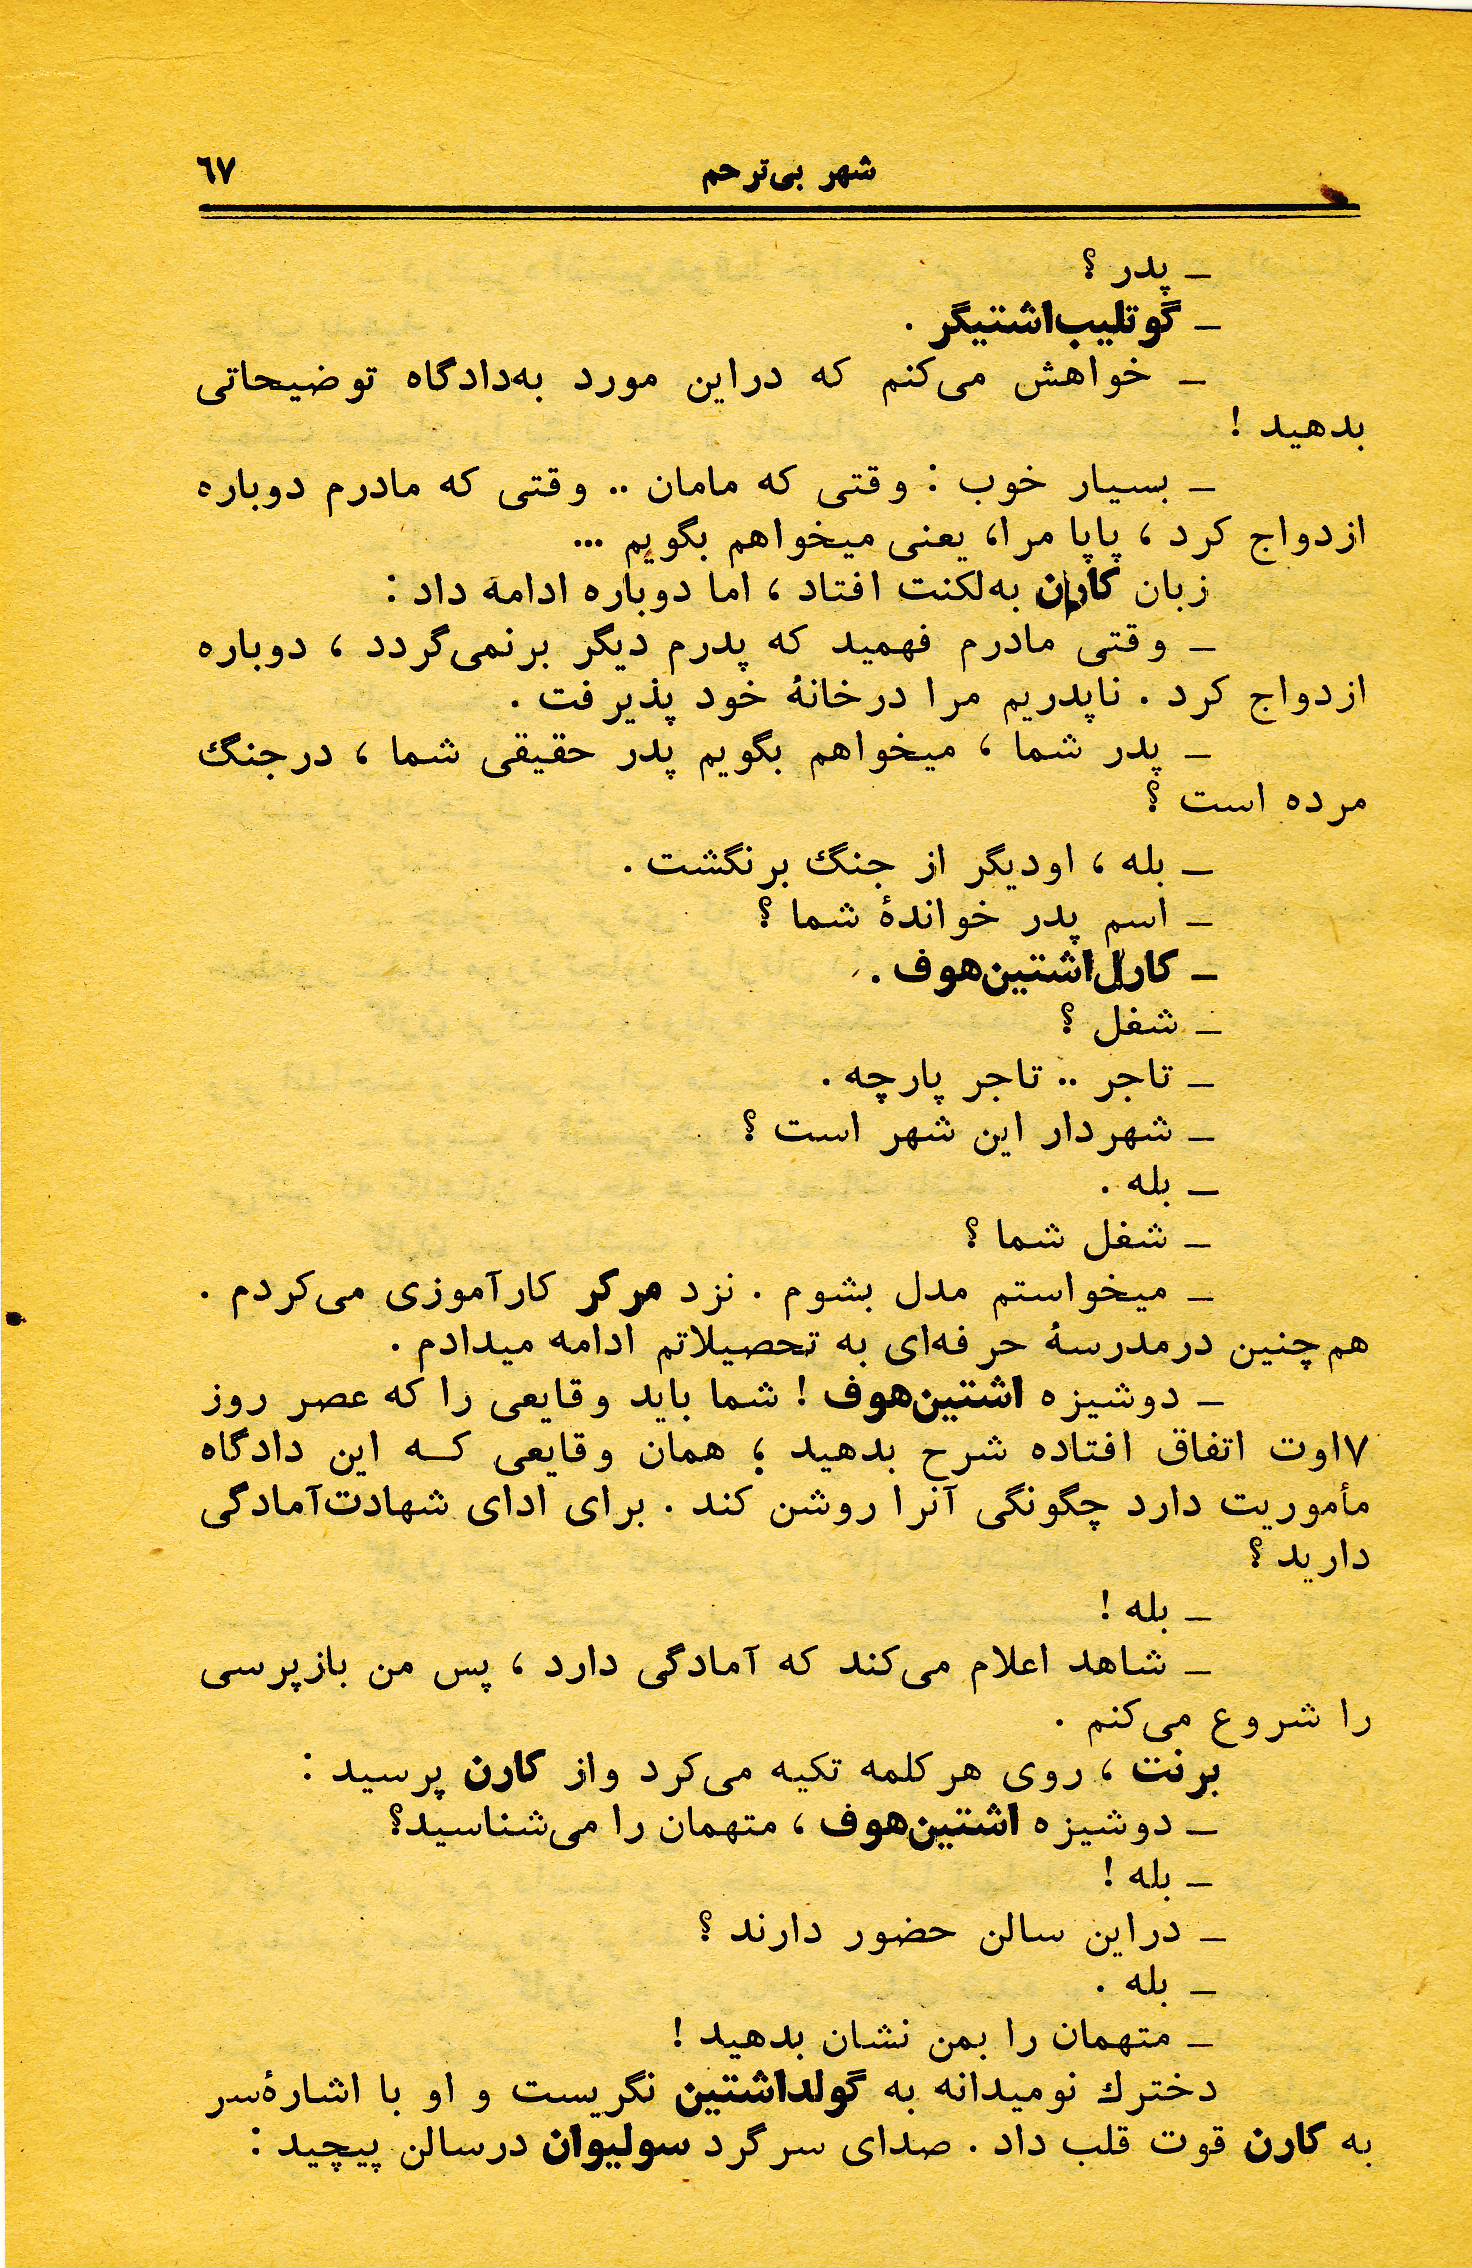 شهر بی‌ترحم ٦٧
ـ پدر ؟
ـ گوتلیب‌اشتیگر .
ـ خواهش می‌کنم که دراین مورد به‌دادگاه توضیحاتی
بدهید !
ـ بسیار خوب : وقتی که مامان .. وقتی که مادرم دوباره
ازدواج کرد ، پاپا مرا، یعنی میخواهم بگویم ...
زبان کارن به‌لکنت افتاد ، اما دوباره ادامه داد :
ـ وقتی مادرم فهمید که پدرم دیگر برنمی‌گردد ، دوباره
ازدواج کرد . ناپدریم مرا درخانهٔ خود پذیرفت .
ـ پدر شما ، میخواهم بگویم پدر حقیقی شما ، درجنگ
مرده است ؟
ـ بله ، اودیگر از جنگ برنگشت .
ـ اسم پدر خواندهٔ شما ؟
ـ کارل‌اشتین‌هوف .
ـ شغل ؟
ـ تاجر .. تاجر پارچه .
ـ شهردار این شهر است ؟
ـ بله .
ـ شغل شما ؟
ـ میخواستم مدل بشوم . نزد مرکر کارآموزی می‌کردم .
هم‌چنین درمدرسهٔ حرفه‌ای به تحصیلاتم ادامه میدادم .
ـ دوشیزه اشتین‌هوف ! شما باید وقایعی را که عصر روز
۷اوت اتفاق افتاده شرح بدهید ؛ همان وقایعی کـه این دادگاه
مأموریت دارد چگونگی آنرا روشن کند . برای ادای شهادت‌آمادگی
دارید ؟
ـ بله !
ـ شاهد اعلام می‌کند که آمادگی دارد ، پس من بازپرسی
را شروع می‌کنم .
برنت ، روی هرکلمه تکیه می‌کرد واز کارن پرسید :
ـ دوشیزه اشتین‌هوف ، متهمان را می‌شناسید؟
ـ بله !
ـ دراین سالن حضور دارند ؟
ـ بله .
ـ متهمان را بمن نشان بدهید !
دخترك نومیدانه به گولداشتین نگریست و او با اشارهٔ‌سر
به کارن قوت قلب داد . صدای سرگرد سولیوان درسالن پیچید :